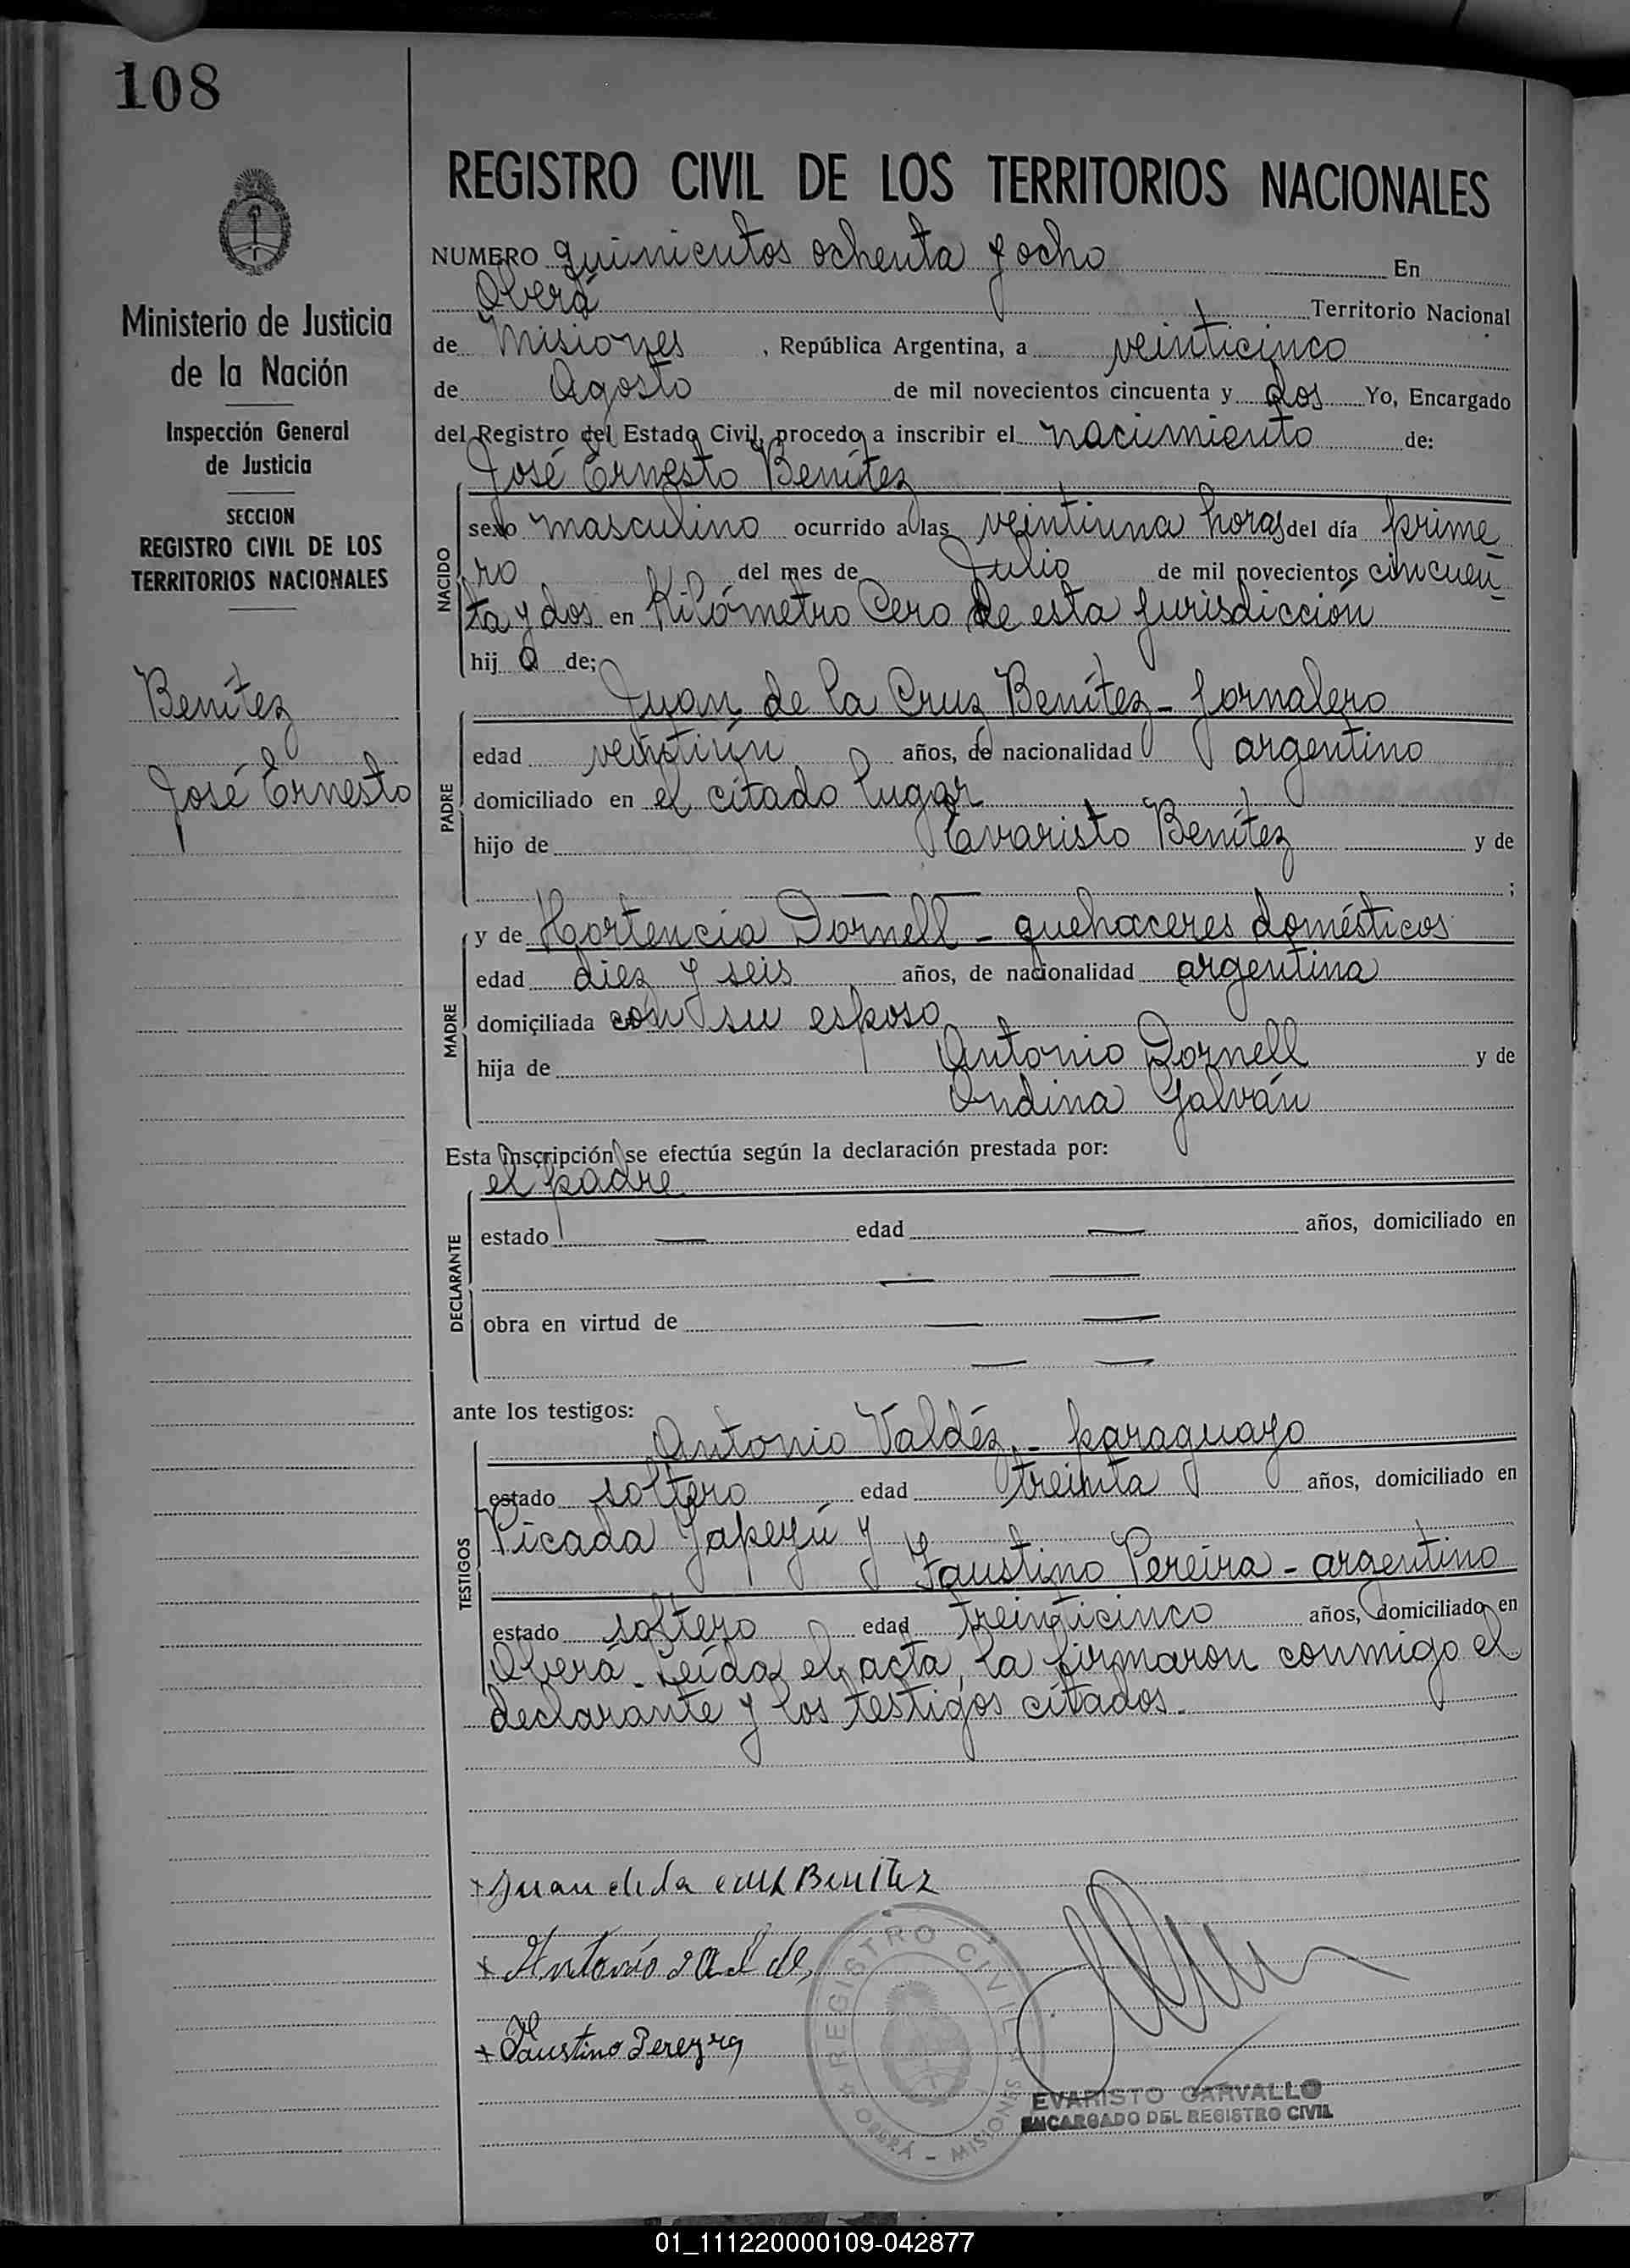 108
Ministerio de Justicia
de la Nación
Inspección General
de Justicia
SECCION
REGISTRO CIVIL DE LOS
TERRITORIOS NACIONALES
Benítez
José Ernesto
REGISTRO CIVIL DE LOS TERRITORIOS NACIONALES
NUMERO quinientos ochenta y ocho En
Oberá Territorio Nacional
de Misiones , República Argentina, a veinticinco
de Agosto de mil novecientos cincuenta y dos Yo, Encargado
del Registro del Estado Civil, procedo a inscribir el nacimiento de:
José Ernesto Benítez
NACIDO
sexo masculino ocurrido a las veintiuna horas del día prime
ro del mes de Julio de mil novecientos cincuen
ta y dos en Kilómetro Cero de esta jurisdicción
hij o de;
Juan de la Cruz Benítez - jornalero
PADRE
edad veintiún años, de nacionalidad argentino
domiciliado en el citado lugar
hijo de Evaristo Benítez y de
— — ;
y de Hortencia Dornell - quehaceres domésticos
MADRE
edad diez y seis años, de nacionalidad argentina
domiciliada con su esposo
hija de Antonio Dornell y de
Ondina Galván
Esta inscripción se efectúa según la declaración prestada por:
el padre
DECLARANTE
estado — edad — años, domiciliado en
— —
obra en virtud de — —
— —
ante los testigos:
Antonio Valdéz, - paraguayo
TESTIGOS
estado soltero edad treinta años, domiciliado en
Picada Yapeyú y
Faustino Pereira - argentino
estado soltero edad treinticinco años, domiciliado en
Oberá. Leída el acta, la firmaron conmigo el
declarante y los testigos citados.
+ Juan de la cruz Benitez
+ Antonio
+ Faustino Pereyra
REGISTRO CIVIL
OBERÁ - MISIONES
EVARISTO CARVALLO
ENCARGADO DEL REGISTRO CIVIL
01_111220000109-042877